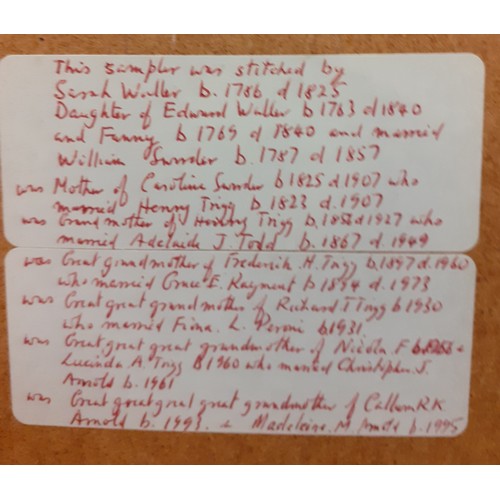 This sampler was stitched by
Sarah Waller b. 1786 d 1825
Daughter of Edward Waller b 1763 d 1840
and Fanny b 1769 d 1840 and married
William Sunder b. 1787 d 1857
was Mother of Caroline Sunder b 1825 d 1907 who
married Henry Trigg b. 1823 d. 1907
was Grand mother of Henry Trigg b. 1858 d 1927 who
married Adelaide J. Todd b. 1867 d. 1949
was Great grandmother of Frederick H. Trigg b. 1897 d. 1960
who married Grace E. Rayment b 1894 d. 1973
was Great great grandmother of Richard T Trigg b 1930
who married Fiona. L. Peroni b 1931
was Great great great grandmother of Nicola. F &
Lucinda A. Trigg B 1960 who married Christopher. J.
Arnold b. 1961
was Great great great great grandmother of Callum R K
Arnold b. 1993 & Madeleine. M. Arnold b. 1995